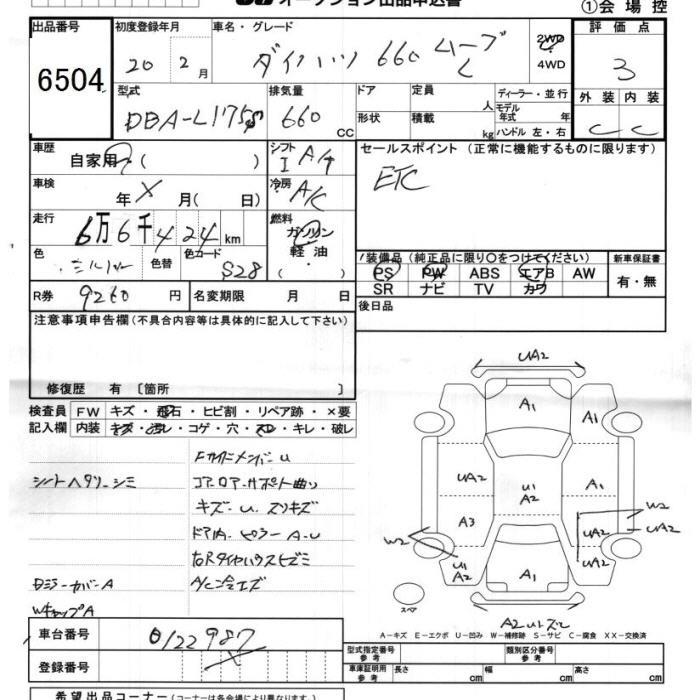 オークション出品申込書
①会場控
出品番号
6504
初度登録年月
20 2月
車名・グレード
ダイハツ 660 ムーブ
L
2WD
4WD
評価点
3
型式
DBA-L175S
排気量
660 CC
ドア
形状
定員 人
積載 kg
ディーラー・並行
モデル年式 年
ハンドル 左・右
外装 内装
C C
車歴
自家用 ( )
シフト
I A/T
セールスポイント (正常に機能するものに限ります)
ETC
車検
年 × 月( 日)
冷房
A/C
走行
6万6千424 km
燃料
ガソリン
軽油
( )
色
シルバー
色替
色コード
S28
装備品 (純正品に限り〇をつけてください)
新車保証書
PS PW ABS エアB AW
SR ナビ TV カワ
有・無
R券 9260 円
名変期限 月 日
後日品
注意事項申告欄 (不具合内容等は具体的に記入して下さい)
修復歴 有 〔箇所 〕
検査員 FW キズ・飛石・ヒビ割・リペア跡・×要
記入欄 内装 キズ・汚レ・コゲ・穴・スレ・キレ・破レ
シートヘタリ・シミ
キズ・U、スリキズ
ドア内・ピラーA-U
右Rタイヤハウスヒズミ
カバーA
WキャップA
UA2
A1
UA2
U1
A2
A1
A3
W2
U1
A2
A1
UA2
W2
UA2
UA2
スペア
A-キズ E-エクボ U-凹み W-補修跡 S-サビ C-腐食 XX-交換済
車台番号
0122987
登録番号
×
型式指定番号
参考
類別区分番号
参考
車庫証明用
参考
長さ cm
幅 cm
高さ cm
希望出品コーナー (コーナーは各会場により異なります)